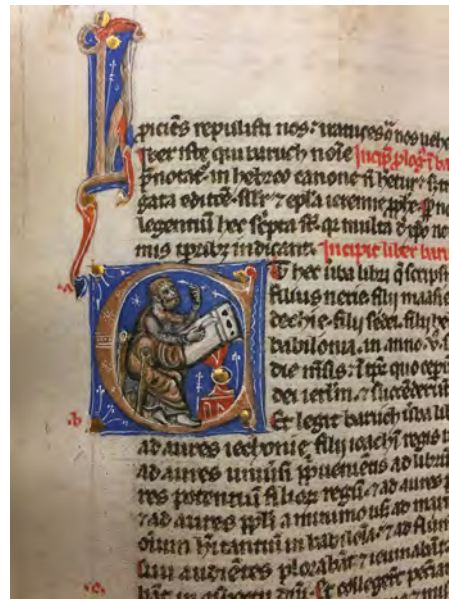 piciēs repulisti nos: iratus es nos uehe
Liber iste qui baruch noīe Incip̄ ꝓloḡ ī ba
p̄notat᷑ in hebreo canone ñ
gata editōe. silr ⁊ epl̄a ieremie ꝓph̄e.
legentiū hec sc̄pta st̄. qr multa d̓ xp̄o no
mis tp̄ribꝫ indicant. Incipit liber baru
Et hec uba libri q̄ scripsit
filius nerie filij maasie
dechie. filij sedei. filij he
babilonia. in anno v. s
die mēsis: ī tp̄r quo cepū
dei ierl̄m. ⁊ succederūt
a
Et legit baruch uba li
b
ad aures iechonie filij ioachī regis
ad aures uniūsi ppli uenientis ad librū
res potentiū filior regū. ⁊ ad aures p
⁊ ad aures ppli a minimo usq ad maxi
oium hītantiū in babilōia. ⁊ ad flum
audiētes plorabāt ⁊ ieiunabāt
c
bāt in aspectu dn̄i. Et collegerūt